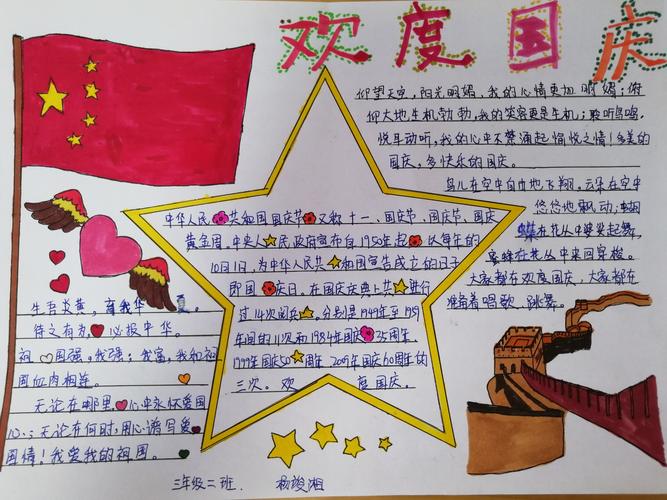 欢度国庆
仰望天空，阳光明媚，我的心情更加明媚；俯
仰大地，生机勃勃，我的笑容更是生机；聆听鸟鸣，
悦耳动听，我的心中不禁涌起愉悦之情！多美的
国庆，多快乐的国庆。
鸟儿在空中自由地飞翔，云朵在空中
悠悠地飘动，蝴
蝶在花丛中翩翩起舞，
蜜蜂在花丛中来回穿梭。
大家都在欢度国庆，大家都在
准备着唱歌、跳舞。
中华人民共和国国庆节又称十一、国庆节、国庆
黄金周，中央人民政府宣布自1950年起以每年的
10月1日，为中华人民共和国宣告成立的日子
即国庆日，在国庆庆典上共进行
过14次阅兵，分别是1949年至1959
年间的11次和1984年国庆35周年，
1999年国庆50周年 2009年国庆60周年的
三次。欢度国庆。
生吾炎黄，育我华夏，
待之有为，必报中华。
祖国强，我强；我富，我和祖
国血肉相连。
无论在哪里，心中永怀爱国
心；无论在何时，用心谱写爱
国情！我爱我的祖国。
三年级二班. 杨浚湘